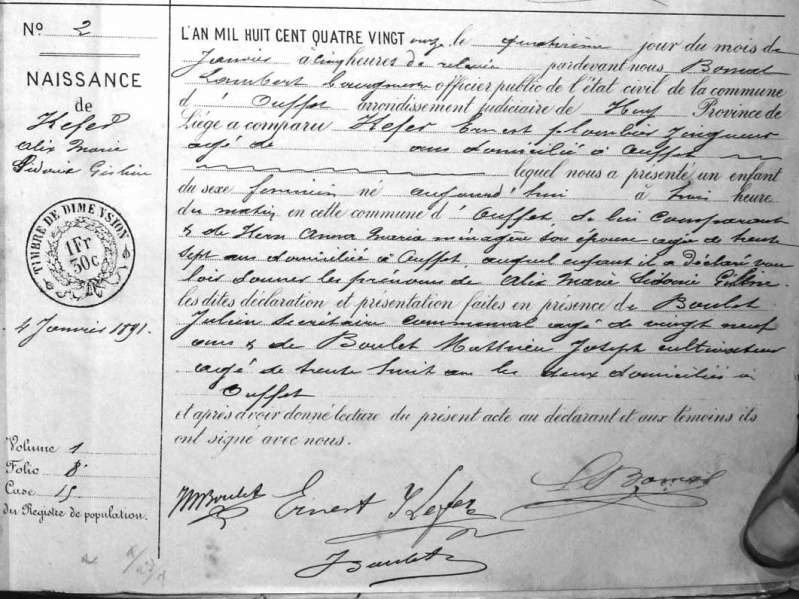 N° 2
NAISSANCE
de
Kefer
Alix Marie
Sidonie Gislin
TIMBRE DE DIMENSION
1 Fr
30c
4 Janvier 1891.
Volume 1
Folio 8
Case 15
du Registre de population.
L'AN MIL HUIT CENT QUATRE VINGT onze le quatrième jour du mois de
Janvier à cinq heures de relevée pardevant nous Bomal
Lambert bourgmestre officier public de l'état civil de la commune
d' Ouffet arrondissement judiciaire de Huy Province de
Liége a comparu Kefer Ernest plombier Zingueur
agé de ans domicilié à Ouffet
lequel nous a présenté un enfant
du sexe feminin né aujourd'hui à huit heure
du matin en cette commune d Ouffet de lui comparant
& de Hern Anna Maria ménagère son épouse agée de trente
sept ans domiciliée à Ouffet, auquel enfant il a déclaré vou
loir donner les prénoms de Alix Marie Sidonie Gislin
les dites déclaration et présentation faites en présence de Boulet
Julien secrétaire communal agé de vingt neuf
ans & de Boulet Mathieu Joseph cultivateur
agé de trente huit ans les deux domiciliés à
Ouffet
et après avoir donné lecture du présent acte au déclarant et aux témoins ils
ont signé avec nous.
MJBoulet Ernest Kefer L Bomal
J Boulet